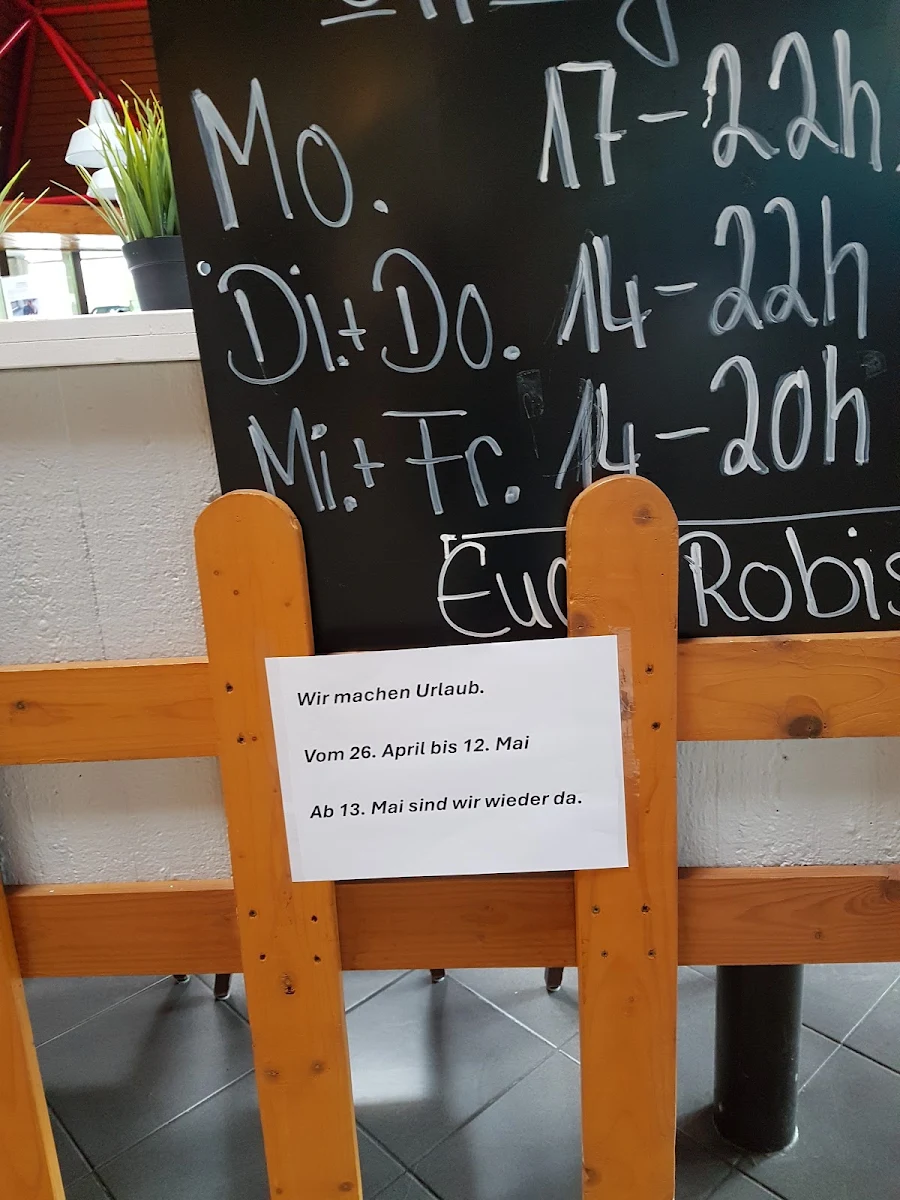 Mo. 17-22h
Di.+Do. 14-22h
Mi.+Fr. 14-20h
Robis
Wir machen Urlaub.
Vom 26. April bis 12. Mai
Ab 13. Mai sind wir wieder da.